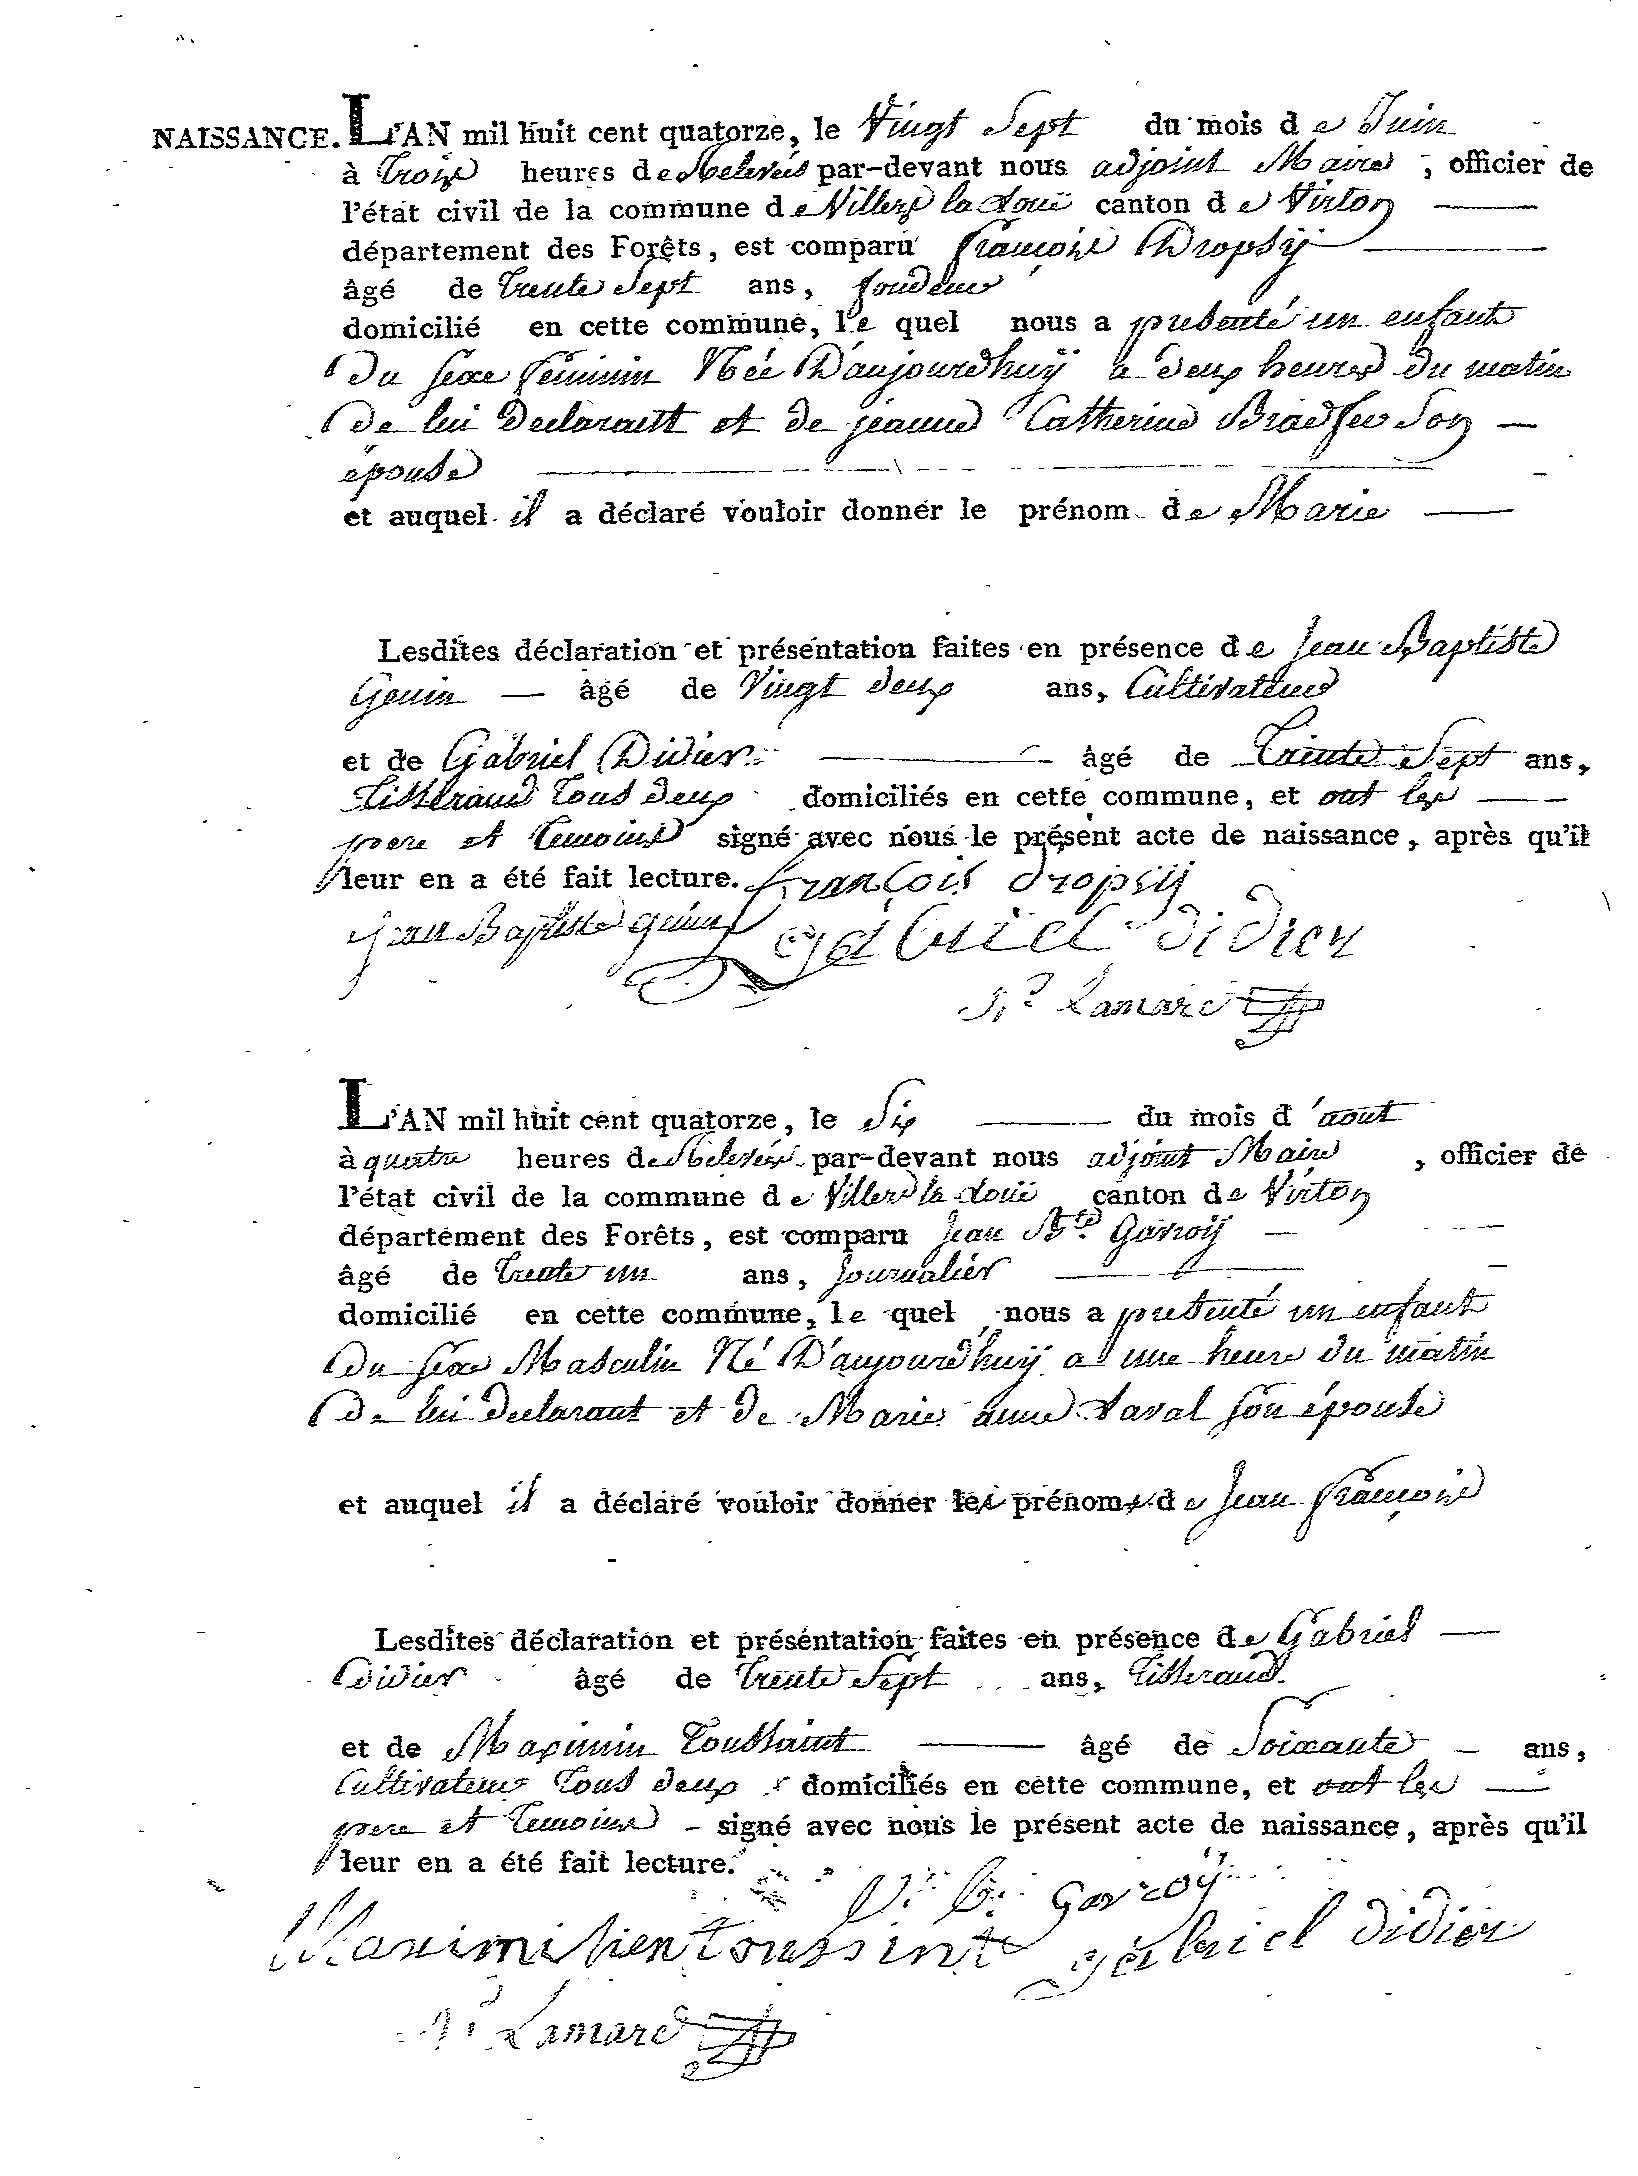 NAISSANCE. L'AN mil huit cent quatorze, le Vingt Sept du mois de Juin
à trois heures de Relevés par-devant nous adjoint Maire, officier de
l'état civil de la commune de Villers la Loüe canton de Virton
département des Forêts, est comparu François Dropsÿ
âgé de trente Sept ans, fondeur
domicilié en cette commune, le quel nous a presenté un enfant
Du sexe feminin Née D'aujourdhuÿ a deux heures du matin
De lui Declarant et de jeanne Catherine Son
épouse
et auquel il a déclaré vouloir donner le prénom de Marie
Lesdites déclaration et présentation faites en présence de Jean Baptiste
Gouin âgé de Vingt deux ans, Cultivateur
et de Gabriel Didier âgé de Trente Sept ans,
Tisserand tous deux domiciliés en cette commune, et ont les
pere et temoins signé avec nous le présent acte de naissance, après qu'il
leur en a été fait lecture. François dropsÿ
jean Baptiste gabriel didier
Lamarc
L'AN mil huit cent quatorze, le Six du mois d'aout
à quatre heures de Relevés par-devant nous adjoint Maire, officier de
l'état civil de la commune de Villers la Loüe canton de Virton
département des Forêts, est comparu Jean Bte Gavroÿ
âgé de trente un ans, journalier
domicilié en cette commune, le quel nous a presenté un enfant
Du sexe Masculin Né D'aujourdhuÿ a une heure du matin
De lui declarant et de Marie anne Laval son épouse
et auquel il a déclaré vouloir donner les prénoms de Jean François
Lesdites déclaration et présentation faites en présence de Gabriel
Didier âgé de trente Sept ans, tisserand
et de Maximin Toussaint âgé de Soixante ans,
Cultivateur tous deux domiciliés en cette commune, et ont les
pere et temoins signé avec nous le présent acte de naissance, après qu'il
leur en a été fait lecture. Gavroÿ
Maximilien toussint gabriel didier
Lamarc